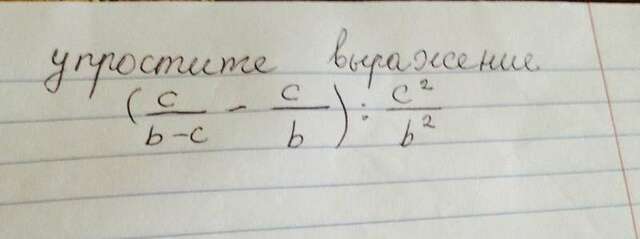 упростите выражение
(c/b-c - c/b) : c²/b²